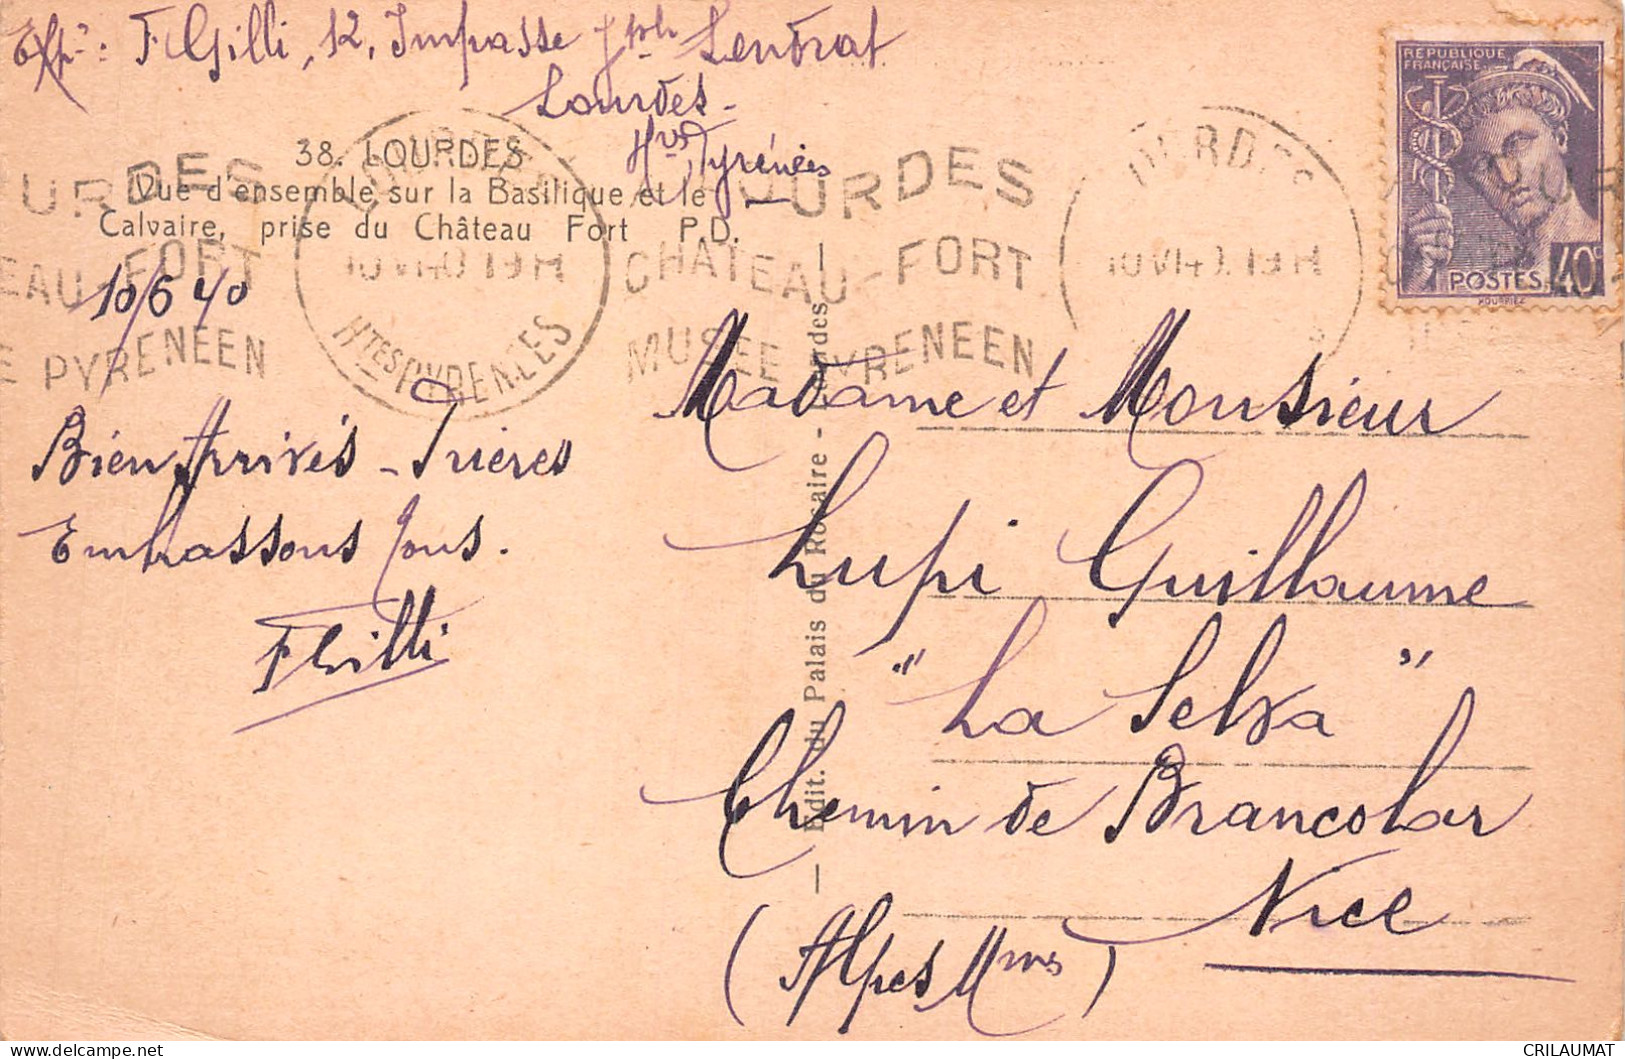 Expr: F Gilli, 12, Impasse Jph Lendrat
Lourdes -
Htes Pyrénées
38. LOURDES
Vue d'ensemble sur la Basilique et le
Calvaire, prise du Château Fort P.D.
10/6 40
Bien Arrivés - Prières
Embrassons Vous.
F Gilli
— Edit. du Palais du Rocaire - Lourdes —
Madame et Monsieur
Lupi Guillaume
"La Selva"
Chemin de Brancolar
Nice
(Alpes Mmes)
REPUBLIQUE
FRANÇAISE
POSTES 40c
HOURRIEZ
LOURDES
10 VI 40 19H
Htes PYRENEES
LOURDES
CHATEAU-FORT
MUSEE PYRENEEN
LOURDES
10 VI 40 19H
URDES
EAU-FORT
E PYRENEEN
CRILAUMAT